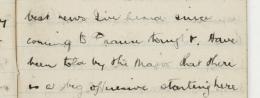 best news I've heard since
coming to France tonight. Have
been told by the Major that there
is a big offensive starting here